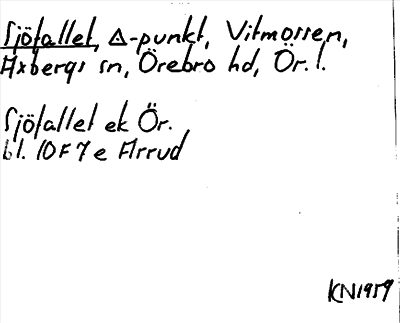 Sjöfallet, Δ-punkt, Vitmossen,
Axbergs sn, Örebro hd, Ör. l.
Sjöfallet ek Ör.
bl. 10F 7e Arrud
KN1959